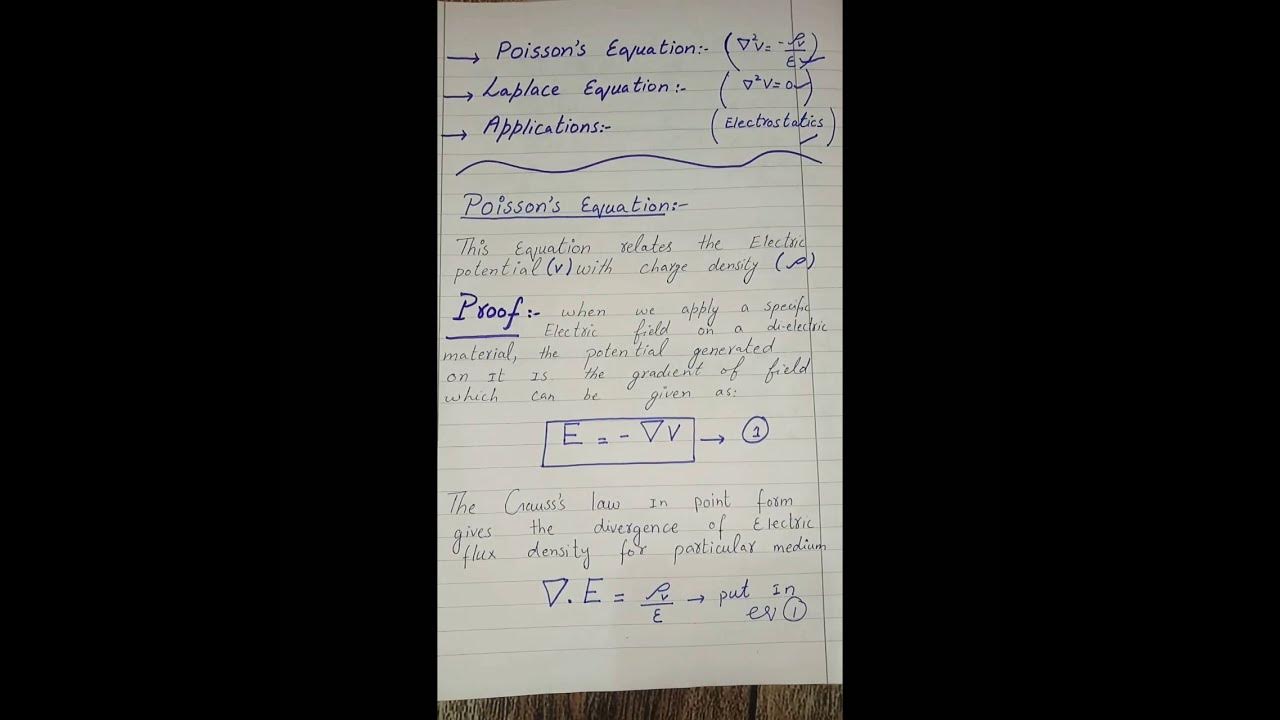 → Poisson's Equation:- (∇²V = -ρv/ε)
→ Laplace Equation:- (∇²V = 0)
→ Applications:- (Electrostatics)
Poisson's Equation:-
This Equation relates the Electric
potential (V) with charge density (ρ)
Proof:- when we apply a specific
Electric field on a di-electric
material, the potential generated
on It Is the gradient of field
which can be given as:
E = - ∇V → ①
The Gauss's law In point form
gives the divergence of Electric
flux density for particular medium
∇.E = ρv/ε → put In
eq ①